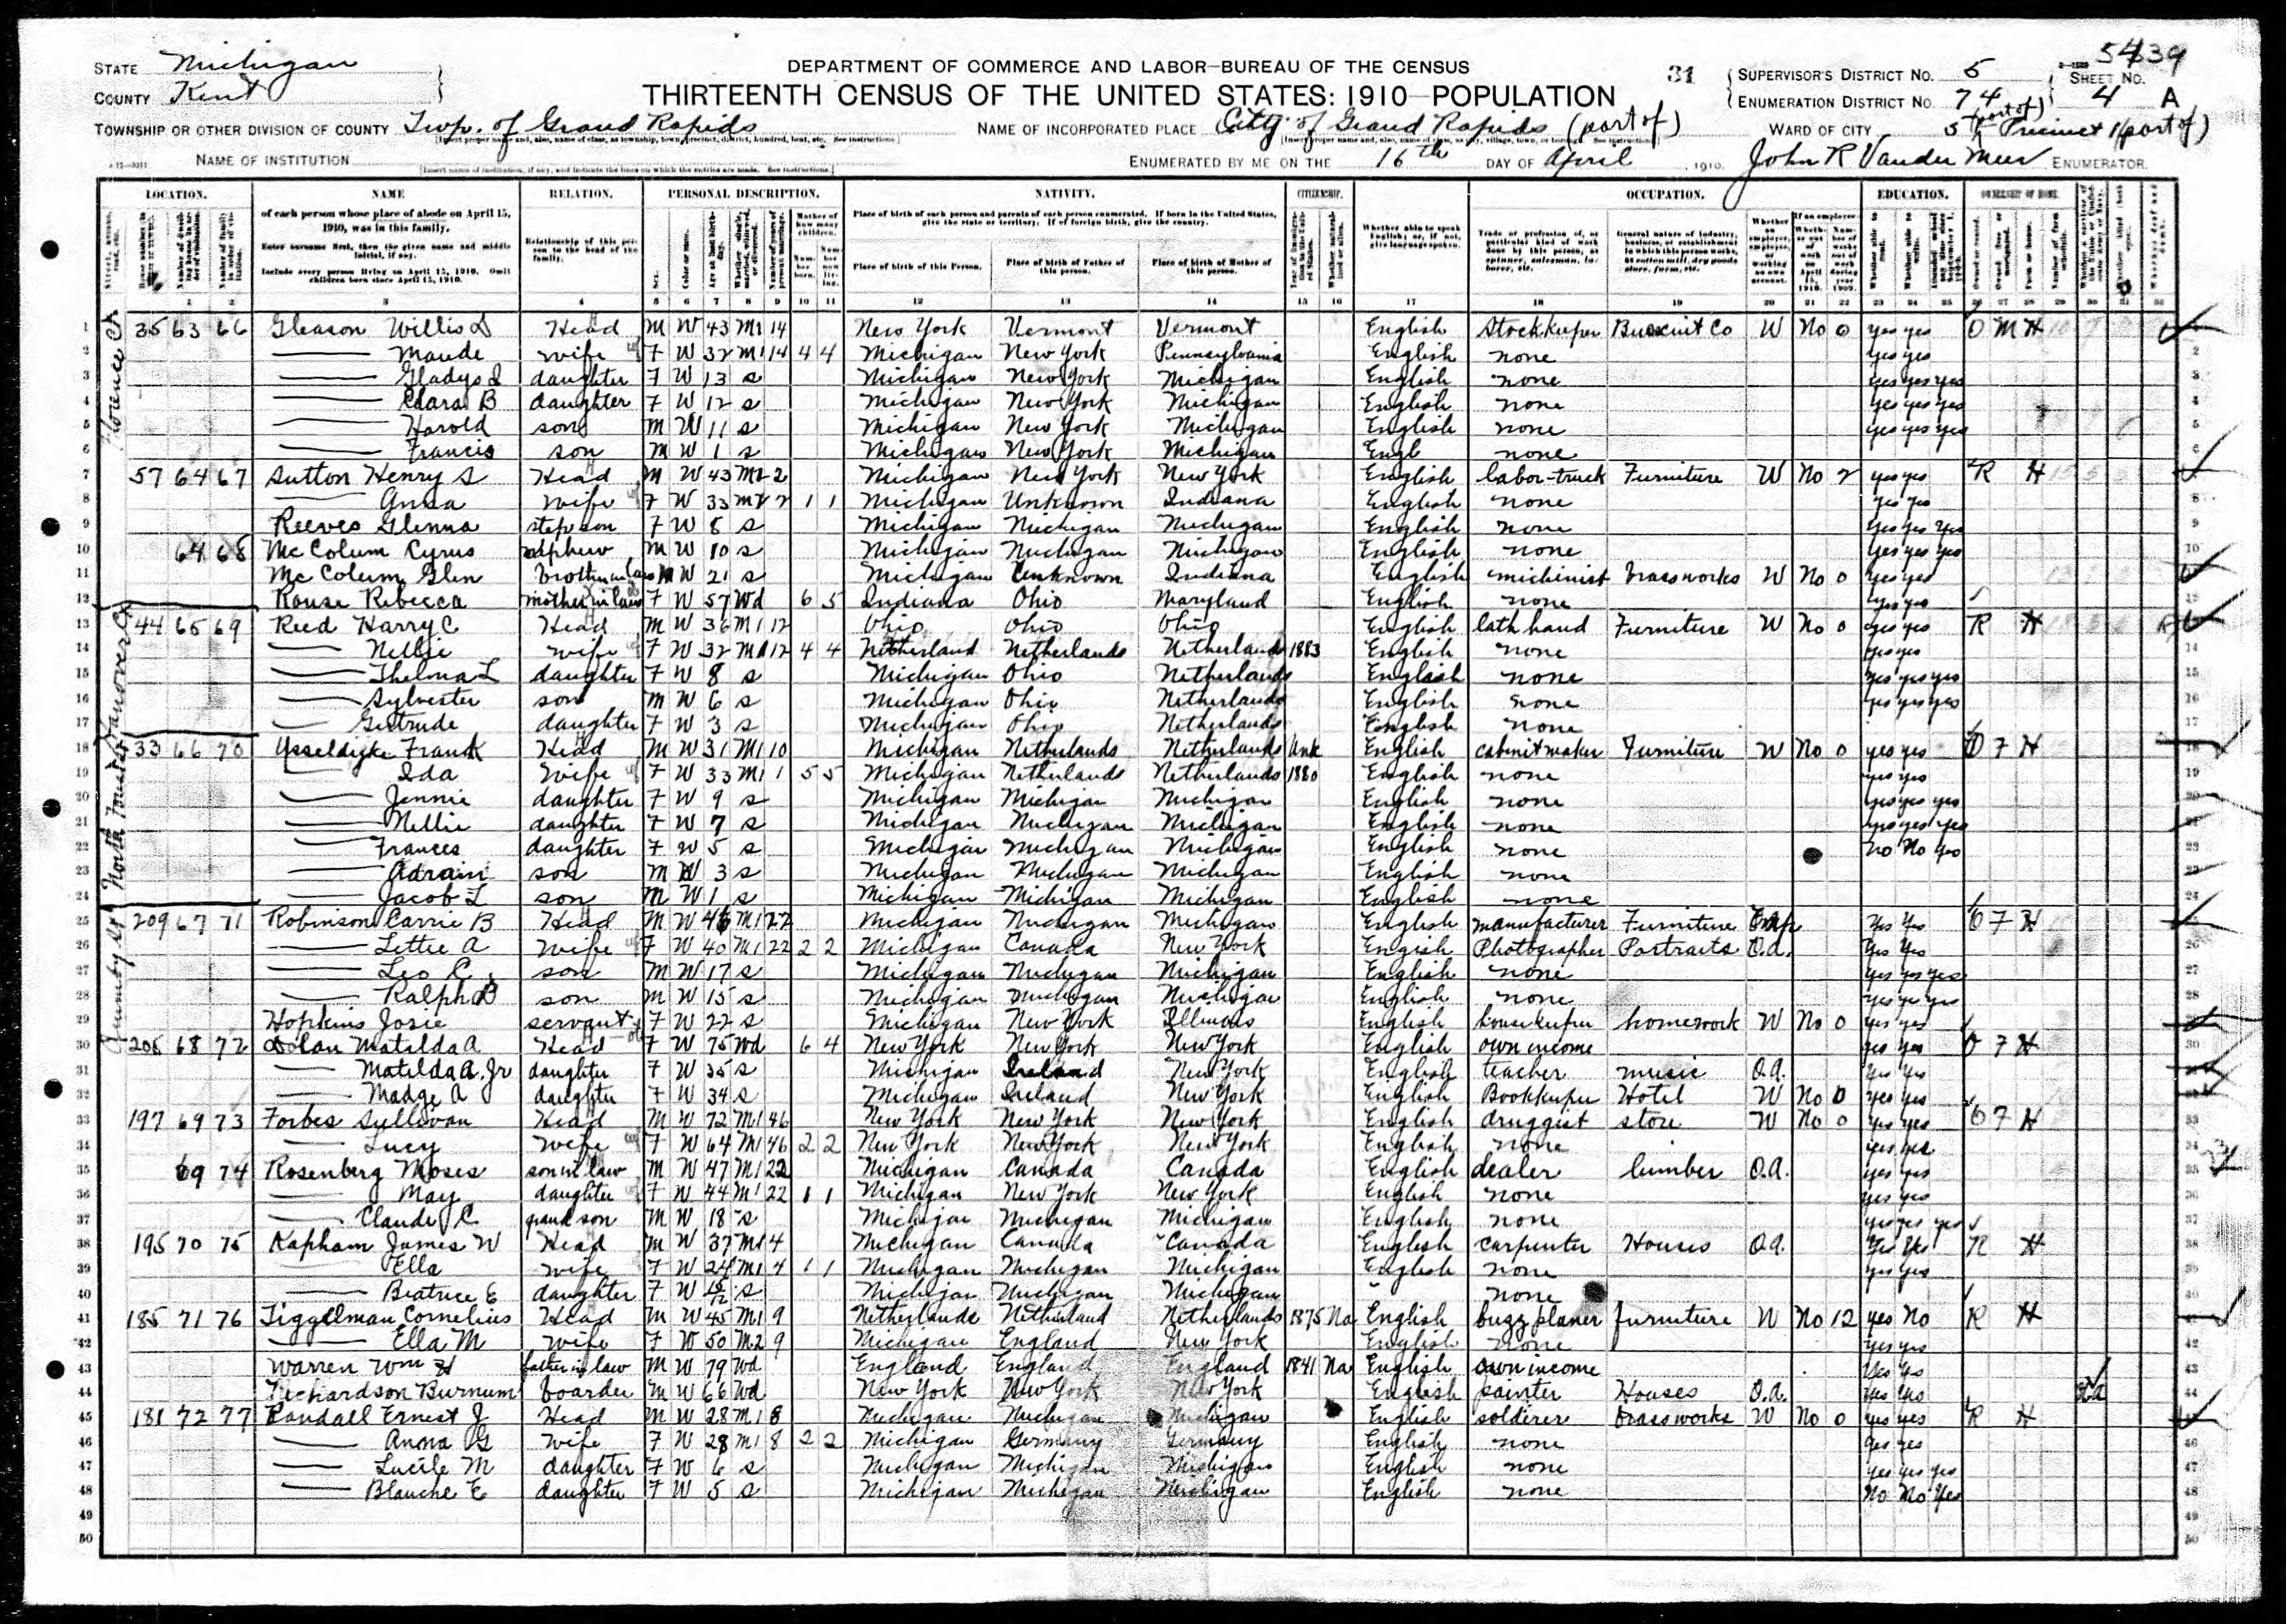 5439
STATE Michigan
COUNTY Kent
DEPARTMENT OF COMMERCE AND LABOR—BUREAU OF THE CENSUS
THIRTEENTH CENSUS OF THE UNITED STATES: 1910—POPULATION
31
SUPERVISOR'S DISTRICT No. 5
ENUMERATION DISTRICT No. 74 (part of)
SHEET No. 4 A
TOWNSHIP OR OTHER DIVISION OF COUNTY Twp. of Grand Rapids
NAME OF INCORPORATED PLACE City of Grand Rapids (part of)
WARD OF CITY 5th Precinct 1 (part of)
NAME OF INSTITUTION
ENUMERATED BY ME ON THE 16th DAY OF April, 1910. John R Vander Meer ENUMERATOR.
LOCATION. NAME RELATION. PERSONAL DESCRIPTION. NATIVITY. CITIZENSHIP. OCCUPATION. EDUCATION. OWNERSHIP OF HOME.
of each person whose place of abode on April 15, 1910, was in this family.
Enter surname first, then the given name and middle initial, if any.
Include every person living on April 15, 1910. Omit children born since April 15, 1910.
Relationship of this person to the head of the family.
Place of birth of each person and parents of each person enumerated. If born in the United States, give the state or territory. If of foreign birth, give the country.
Place of birth of this Person. Place of birth of Father of this person. Place of birth of Mother of this person.
Whether able to speak English; or, if not, give language spoken.
1 35 63 66 Gleason Willis D Head M W 43 M1 14 New York Vermont Vermont English Stockkeeper Co W No 0 yes yes O M H
2 Maude wife F W 32 M1 14 4 4 Michigan New York Pennsylvania English none yes yes
3 Gladys I daughter F W 13 s Michigan New York Michigan English none yes yes yes
4 Clara B daughter F W 12 s Michigan New York Michigan English none yes yes yes
5 Harold son M W 11 s Michigan New York Michigan English none yes yes yes
6 Francis son M W 1 s Michigan New York Michigan Engl none
7 57 64 67 Sutton Henry S Head M W 43 M2 2 Michigan New York New York English labor-truck Furniture W No 2 yes yes R H
8 Anna wife F W 33 M2 2 1 1 Michigan Unknown Indiana English none yes yes
9 Reeves Glenna stepson F W 8 s Michigan Michigan Michigan English none yes yes yes
10 64 68 Mc Colum Cyrus M W 10 s Michigan Michigan Michigan English none yes yes yes
11 Mc Colum Glen brother in law M W 21 s Michigan Unknown Indiana English michinist brassworks W No 0 yes yes
12 Rouse Rebecca mother in law F W 57 Wd 6 5 Indiana Ohio Maryland English none yes yes
13 44 65 69 Reed Harry C Head M W 36 M1 12 Ohio Ohio Ohio English lath hand Furniture W No 0 yes yes R H
14 Nellie wife F W 32 M1 12 4 4 Netherland Netherlands Netherlands 1883 English none yes yes
15 Thelma L daughter F W 8 s Michigan Ohio Netherlands English none yes yes yes
16 Sylvester son M W 6 s Michigan Ohio Netherlands English none yes yes yes
17 Gertrude daughter F W 3 s Michigan Ohio Netherlands English none
18 33 66 70 Ysseldyke Frank Head M W 31 M1 10 Michigan Netherlands Netherlands Unk English cabinitmaker Furniture W No 0 yes yes O F H
19 Ida wife F W 33 M1 1 5 5 Michigan Netherlands Netherlands 1880 English none yes yes
20 Jennie daughter F W 9 s Michigan Michigan Michigan English none yes yes yes
21 Nellie daughter F W 7 s Michigan Michigan Michigan English none yes yes yes
22 Frances daughter F W 5 s Michigan Michigan Michigan English none no No yes
23 Adrain son M W 3 s Michigan Michigan Michigan English none
24 Jacob L son M W 1 s Michigan Michigan Michigan English none
25 209 67 71 Robinson Carrie B Head M W 46 M1 22 Michigan Michigan Michigan English manufacturer Furniture Emp yes yes O F H
26 Lettie A wife F W 40 M1 22 2 2 Michigan Canada New York English Photographer Portraits O.A. yes yes
27 Leo C son M W 17 s Michigan Michigan Michigan English none yes yes yes
28 Ralph B son M W 15 s Michigan Michigan Michigan English none yes yes yes
29 Hopkins Josie servant F W 22 s Michigan New York Illinois English housekeeper homework W No 0 yes yes
30 205 68 72 Dolan Matilda A Head F W 75 Wd 6 4 New York New York New York English own income yes yes O F H
31 Matilda A. Jr daughter F W 35 s Michigan Ireland New York English teacher music O.A. yes yes
32 Madge A daughter F W 34 s Michigan Ireland New York English Bookkeeper Hotel W No 0 yes yes
33 197 69 73 Forbes Sullivan Head M W 72 M1 46 New York New York New York English druggist store W No 0 yes yes O F H
34 Lucy wife F W 64 M1 46 2 2 New York New York New York English none yes yes
35 69 74 Rosenberg Moses son in law M W 47 M1 22 Michigan Canada Canada English dealer lumber O.A. yes yes
36 May daughter F W 44 M1 22 1 1 Michigan New York New York English none yes yes
37 Claude C grand son M W 18 s Michigan Michigan Michigan English none yes yes yes
38 195 70 75 Kapham James W Head M W 37 M1 4 Michigan Canada Canada English carpenter Houses O.A. yes yes R H
39 Ella wife F W 24 M1 4 1 1 Michigan Michigan Michigan English none yes yes
40 Beatrice E daughter F W s Michigan Michigan Michigan none
41 185 71 76 Tiggelman Cornelius Head M W 45 M1 9 Netherlands Netherland Netherlands 1875 Na English buzz planer furniture W No 12 yes No R H
42 Ella M wife F W 50 M2 9 Michigan England New York English none yes yes
43 Warren Wm H father in law M W 79 Wd England England England 1841 Na English own income yes yes
44 Richardson Burnum boarder M W 66 Wd New York New York New York English painter Houses O.A. yes yes
45 181 72 77 Randall Ernest J Head M W 28 M1 8 Michigan Michigan Michigan English soldirer brassworks W No 0 yes yes R H
46 Anna G wife F W 28 M1 8 2 2 Michigan Germany Germany English none yes yes
47 Lucile M daughter F W 6 s Michigan Michigan Michigan English none yes yes yes
48 Blanche E daughter F W 5 s Michigan Michigan Michigan English none No No yes
49
50